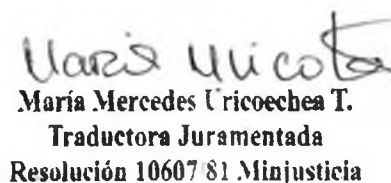 María Mercedes Uricoechea T.
Traductora Juramentada
Resolución 10607 81 Minjusticia